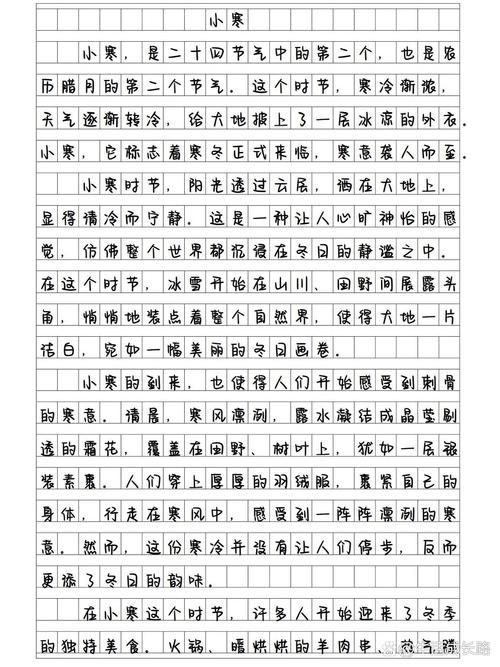 小寒
小寒，是二十四节气中的第二个，也是农
历腊月的第二个节气．这个时节，寒冷渐浓，
天气逐渐转冷，给大地披上了一层冰凉的外衣．
小寒，它标志着寒冬正式来临，寒意袭人而至．
小寒时节，阳光透过云层，洒在大地上，
显得清冷而宁静．这是一种让人心旷神怡的感
觉，仿佛整个世界都沉浸在冬日的静谧之中．
在这个时节，冰雪开始在山川、田野间展露头
角，悄悄地装点着整个自然界，使得大地一片
洁白，宛如一幅美丽的冬日画卷．
小寒的到来，也使得人们开始感受到刺骨
的寒意．清晨，寒风凛冽，露水凝结成晶莹剔
透的霜花，覆盖在田野、树叶上，犹如一层银
装素裹．人们穿上厚厚的羽绒服，裹紧自己的
身体，行走在寒风中，感受到一阵阵凛冽的寒
意．然而，这份寒冷并没有让人们停步，反而
更添了冬日的韵味．
在小寒这个时节，许多人开始迎来了冬季
的独特美食．火锅、暖烘烘的羊肉串、
成长路